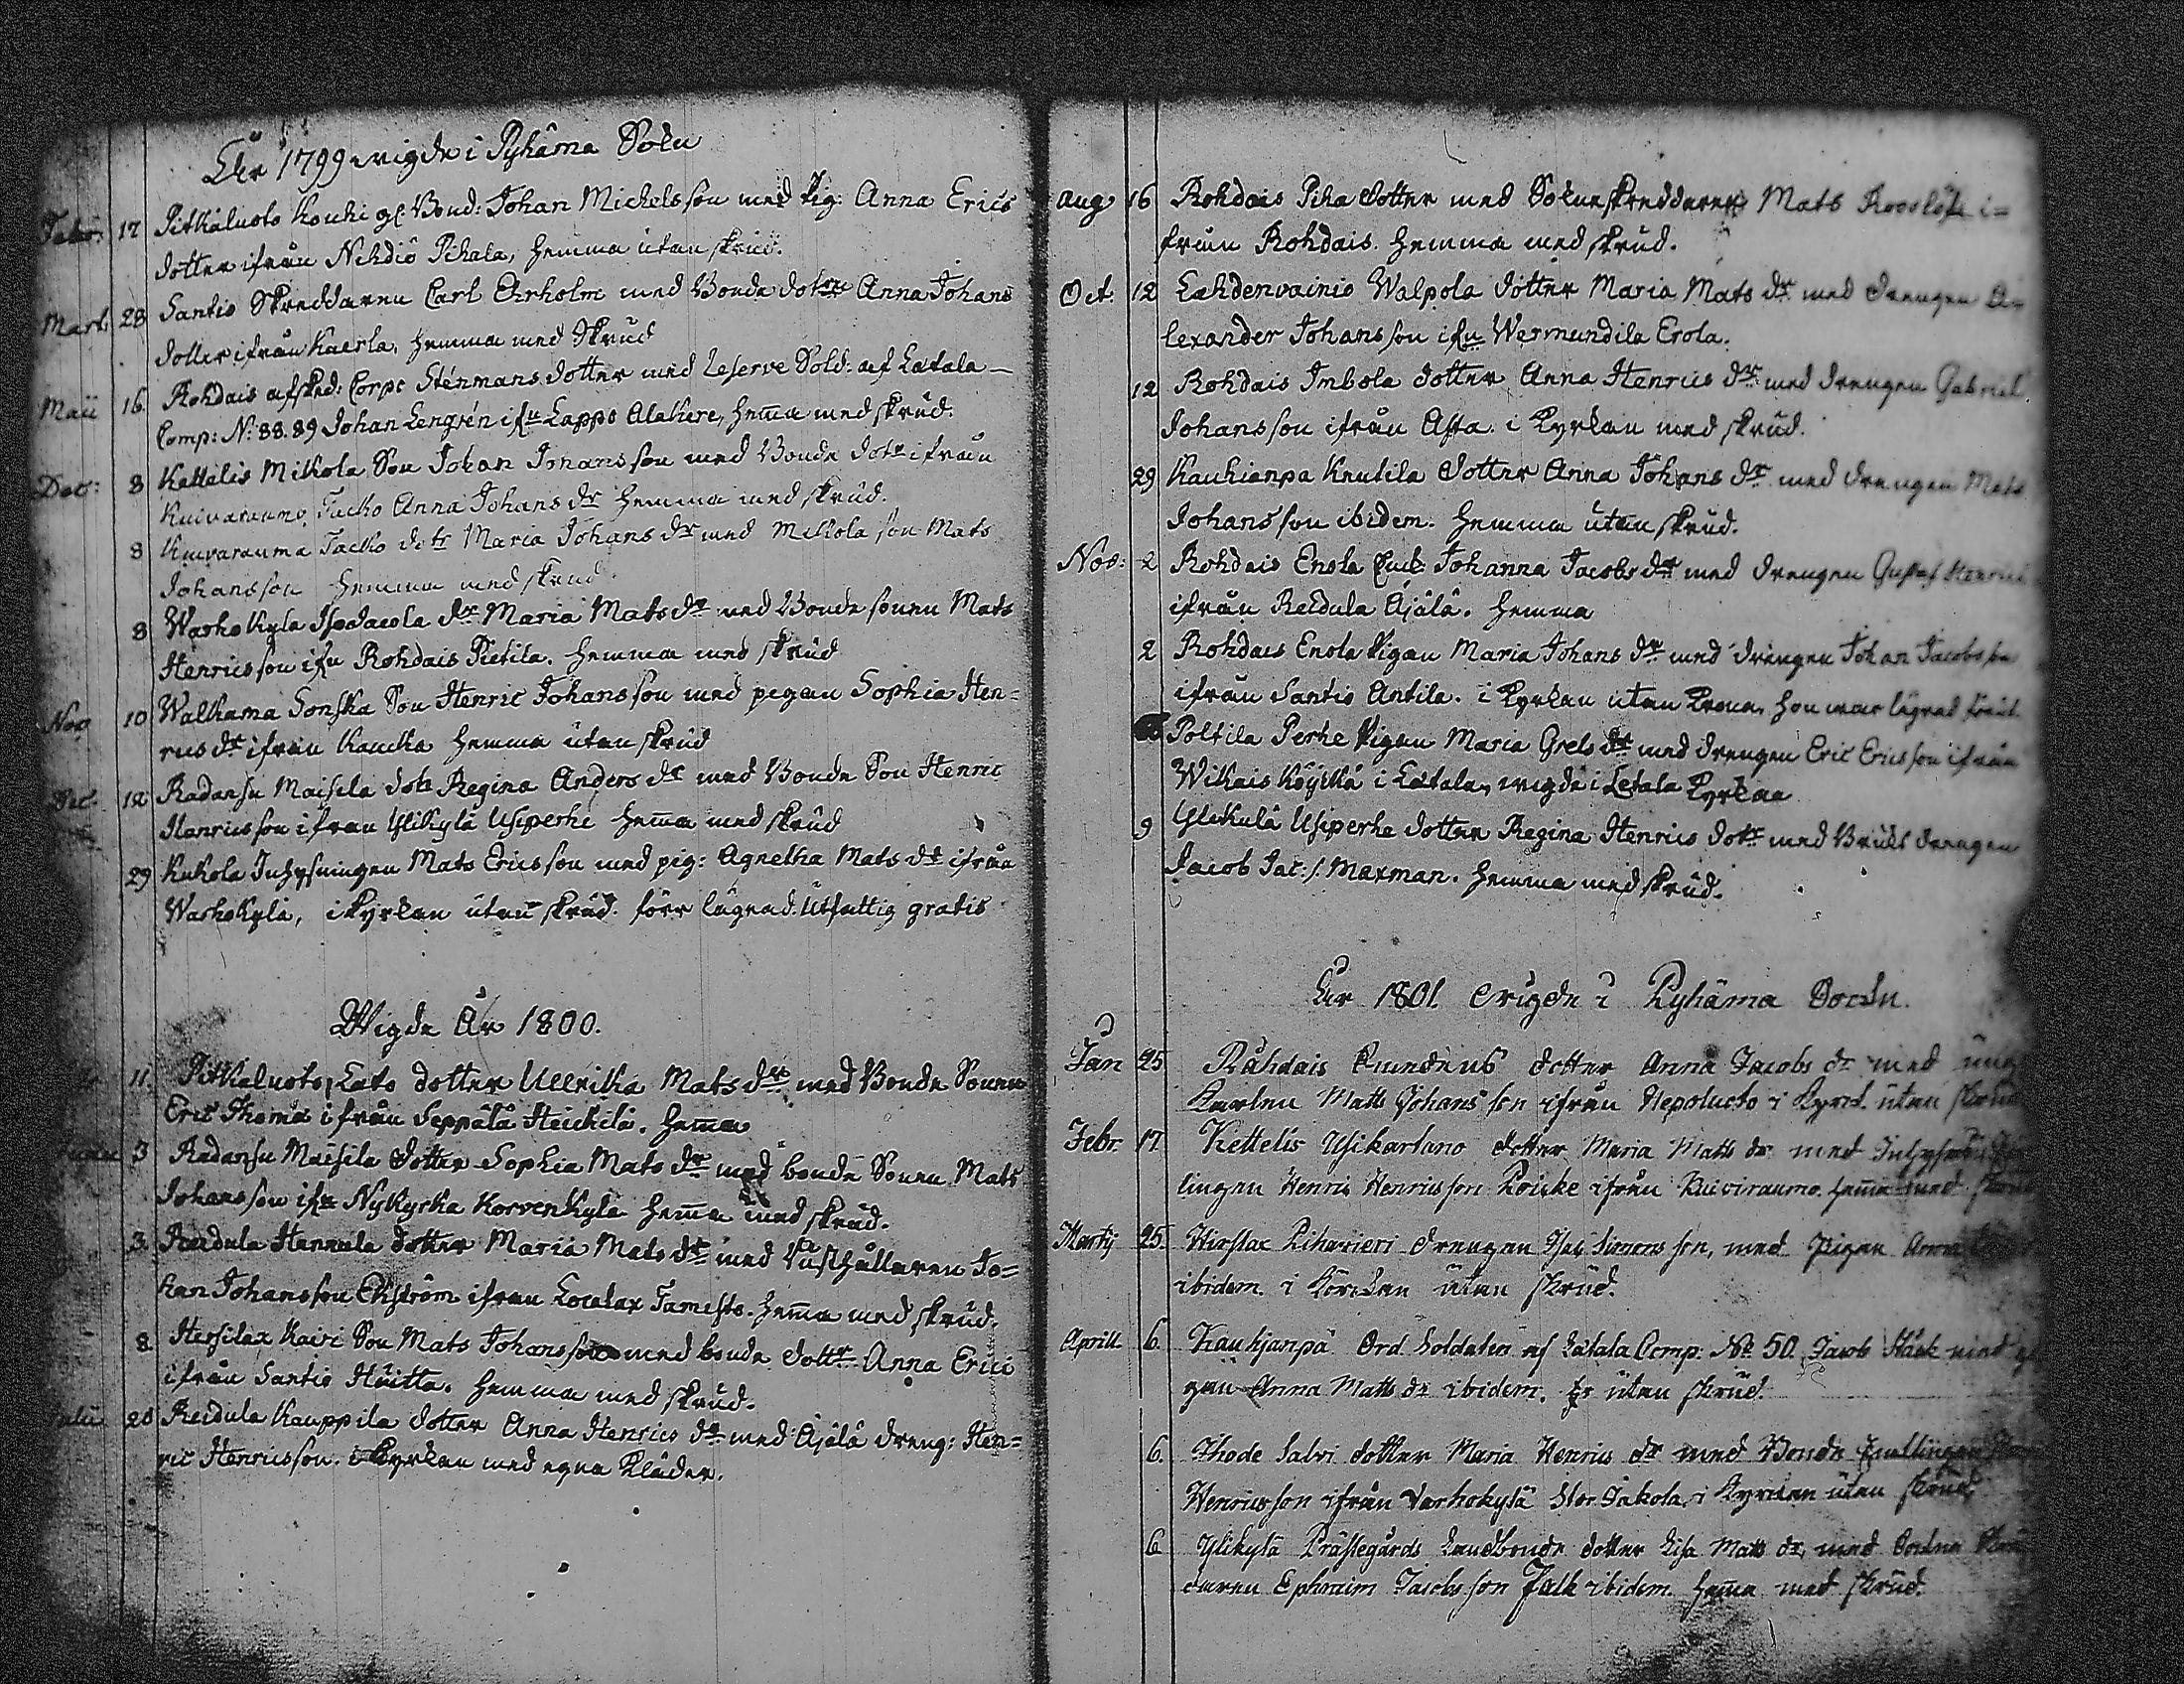 År 1799 wigde i Pyhäma Sokn
Febr: 17 Pitkäluoto Kouki gl: Bond: Johan Michelsson med Pig: Anna Erics
dotter ifrån Nihdiö Pihala, hemma utan skrud.
Mart: 28 Santio Skreddaren Carl Ehrholm med Bonde dotren Anna Johans
dotter ifrån Kaerla, hemma med skrud
Maii 16. Rohdais afsked: Corpr Stenmans dotter med Reserve Sold: af Letala
Comp: No: 88.89 Johan Lengrén ifn Lappo Alakere, hema med skrud.
Dec: 8 Kettelis Mikola Son Johan Johansson med Bonde dotr ifrån
Kuivaraumo Jacko Anna Johans dr hemma med skrud.
8 Kuivarauma Jacko dotr Maria Johans dr med Mickola son Mats
Johansson hemma med skrud
8 Warhokyla Isodacola dr Maria Mats dr med Bonde sonen Mats
Henricsson ifn Rohdais Pietila. hemma med skrud
Nov 10 Walkama Sonska Son Henric Johansson med pigan Sophia Hen=
rics dr ifrån Kaucka hemma utan skrud
Dec. 12 Radansu Maisila dotr Regina Anders dr med Bonde Son Henric
Henricsson ifrån Ylikylä Usiperhe hema med skrud
29 Kukola Inhysningen Mats Ericsson med pig: Agnetha Mats dr ifrån
Warhokylä, i kyrkan utan skrud. förr lägrad. Utfattig gratis
Wigde År 1800.
11. Pitkäluoto Lato dotter Ullrika Mats dr med Bonde Sonen
Eric Thoma ifrån Seppälä Heickilä. hema
3 Radansu Maisila dotter Sophia Mats dr med bonde Sonen Mats
Johansson ifn Nykyrka Korvenkylä hema med skrud.
3. Reidula Hannula dotter Maria Mats dr med Rusthållaren Jo=
han Johansson Ekström ifrån Localax Tamisto. hema med skrud.
8 Hirsilax Kairi Son Mats Johansson med bonde dottr Anna Erics
ifrån Santio Huitta. hemma med skrud.
28 Reidula Kauppila dotter Anna Henrics dr med Äjälä dreng: Hen=
ric Henricsson. i kyrkan med egna kläder.
Aug 16 Rohdais Piha dotter med Sokneskreddaren Mats i=
från Rohdais. hemma med skrud.
Oct: 12 Lahdenvainio Walpola dotter Maria Mats dr med drengen A=
lexander Johansson ifn Wermundila Erola.
12 Rohdais Imbola dotter Anna Henrics dr med drengen Gabriel
Johansson ifrån Asta. i Kyrkan med skrud.
29 Kauhianpa Knutila dotter Anna Johans dr med drengen Mats
Johansson ibidem. hemma utan skrud.
Nov: 2 Rohdais Enola Johanna Jacobs dr med drengen Gustaf Henrics
ifrån Reidula Äjälä. hemma
2 Rohdais Enola Pigan Maria Johans dr med drengen Johan Jacobsson
ifrån Santio Antila. i Kyrkan utan krona, hon war lägrad förut.
Poltila Perhe Pigan Maria Grels dr med drengen Eric Ericsson ifrån
Wikais Köyckä i Letala, wigde i Letala Kyrkaa
9 Ylikulä Usiperhe dotter Regina Henrics dotr med Bruks drengen
Jacob Jac: s. Maxman. hemma med skrud.
År 1801. wigde i Pyhäma Sockn.
Jan 25 Råhdais dotter Anna Jacobs dr med ung
Karlen Matts Johansson ifrån Nepoluoto i Kyrck. utan skrud
Febr. 17. Kettelis Usikartano dotter Maria Matts dr med
lingen Henric Henricsson Roicke ifrån Kuiviraumo. hema med skrud
Martij 25 Hirslax Riharieri drengen Isac Simonsson, med Pigan Anna
ibidem. i Körckan utan skrud.
Aprill 6. Kauhjanpä Ord. Soldaten af Lätala Comp: No 50. Jacob Stark med
gan Anna Matts dr ibidem. utan skrud.
6. Ihode Salvi dotter Maria Henrics dr med Bonde
Henricsson ifrån Varhokylä Stor Jakola, i Kyrckan utan skrud
6 Ylikylä Prästegårds Landbonde dotter Lisa Matts dr, med Sockne
daren Ephraim Jacobsson Falk ibidem hema med skrud.